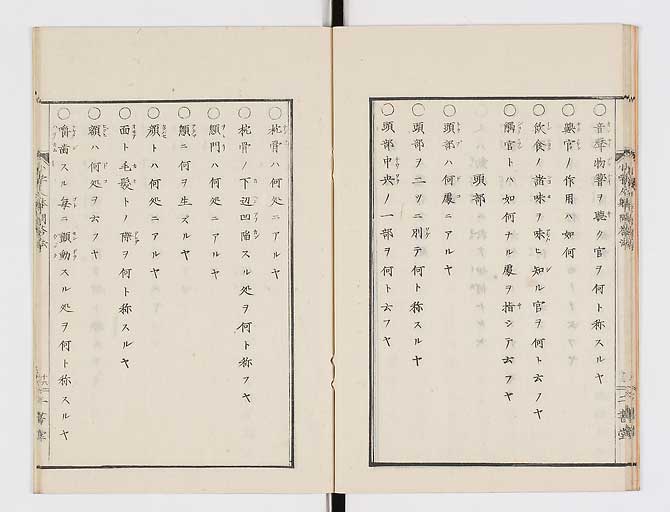 ○音聲物響ヲ聴ク官ヲ何ト称スルヤ
○嗅官ノ作用ハ如何
○飲食ノ諸味ヲ味ヒ知ル官ヲ何ト云フヤ
○觸官トハ如何ナル處ヲ指シテ云フヤ
頭部
○頭部ハ何處ニアルヤ
○頭部ヲ二ツニ別テ何ト称スルヤ
○頭部中央ノ一部ヲ何ト云フヤ
○枕骨ハ何処ニアルヤ
○枕骨ノ下辺凹陥スル処ヲ何ト称フヤ
○顖門ハ何処ニアルヤ
○顱ニ何ヲ生ズルヤ
○顔トハ何処ニアルヤ
○面ト毛髪トノ際ヲ何ト称スルヤ
○額ハ何処ヲ云フヤ
○嚼歯スル毎ニ顫動スル処ヲ何ト称スルヤ